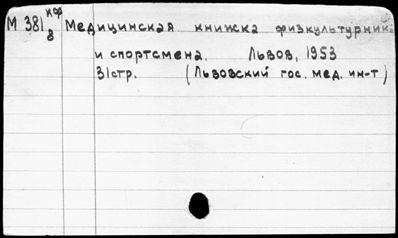 М 381/8 кф Медицинская книжка физкультурника
и спортсмена. Львов, 1953
31стр. (Львовский гос. мед. ин-т)